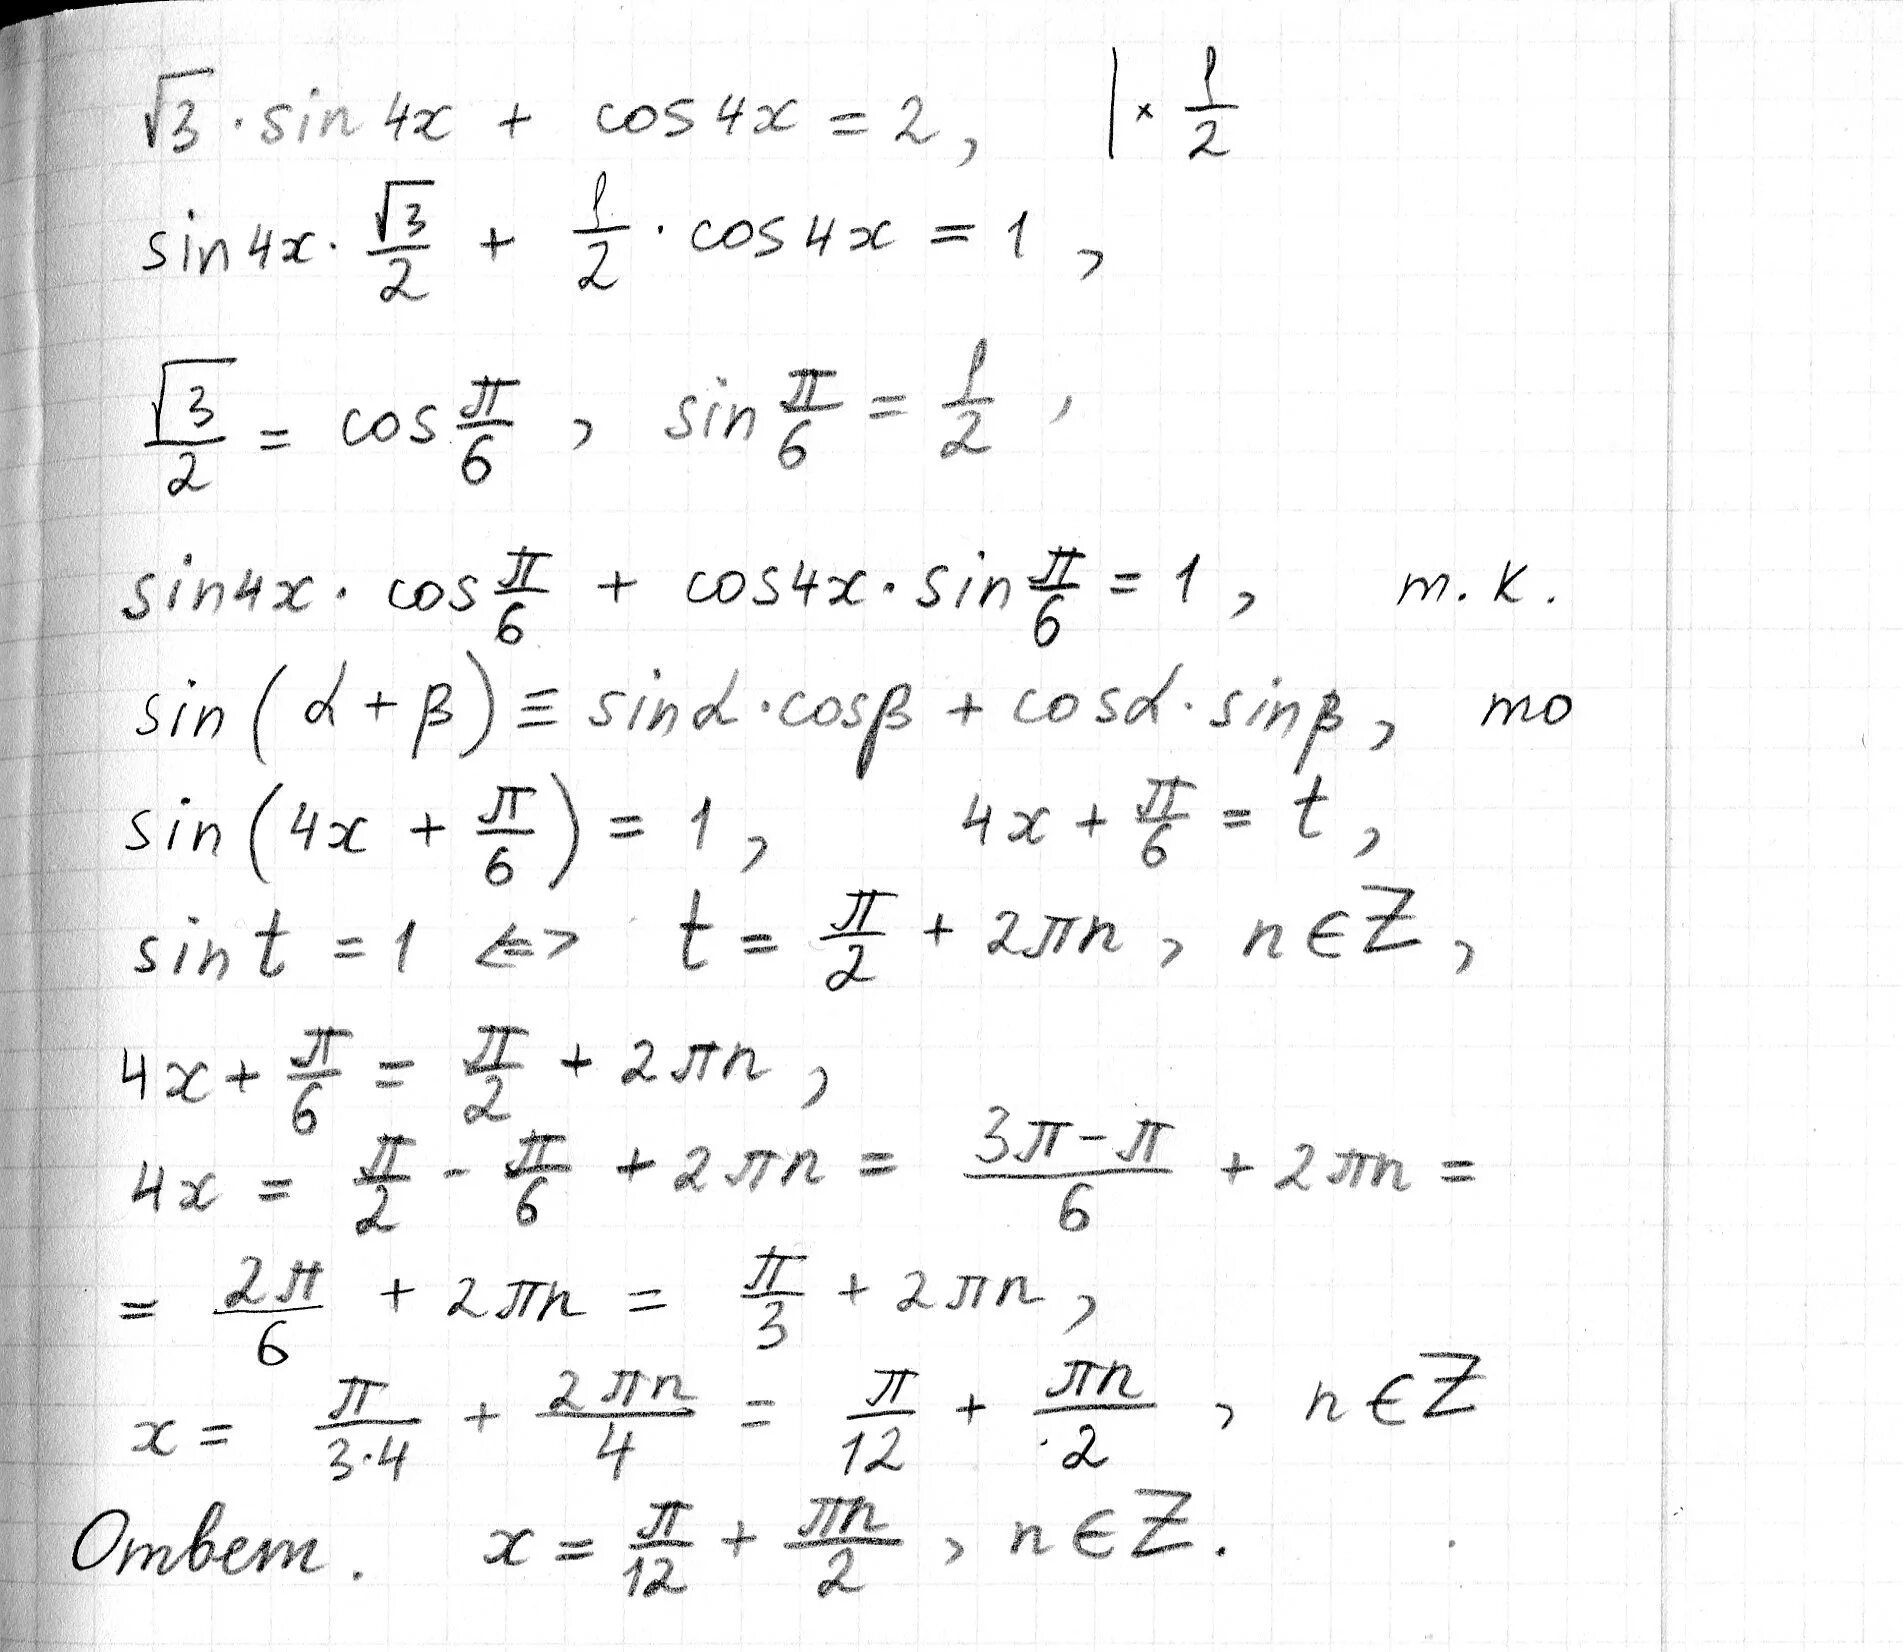 √3 · sin 4x + cos 4x = 2, | × 1/2
sin 4x · √3/2 + 1/2 · cos 4x = 1,
√3/2 = cos π/6, sin π/6 = 1/2,
sin 4x · cos π/6 + cos 4x · sin π/6 = 1, т.к.
sin(α + β) ≡ sin α · cos β + cos α · sin β, то
sin(4x + π/6) = 1, 4x + π/6 = t,
sin t = 1 <=> t = π/2 + 2πn, n ∈ Z,
4x + π/6 = π/2 + 2πn,
4x = π/2 - π/6 + 2πn = (3π - π)/6 + 2πn =
= 2π/6 + 2πn = π/3 + 2πn,
x = π/(3·4) + 2πn/4 = π/12 + πn/2, n ∈ Z
Ответ. x = π/12 + πn/2, n ∈ Z.